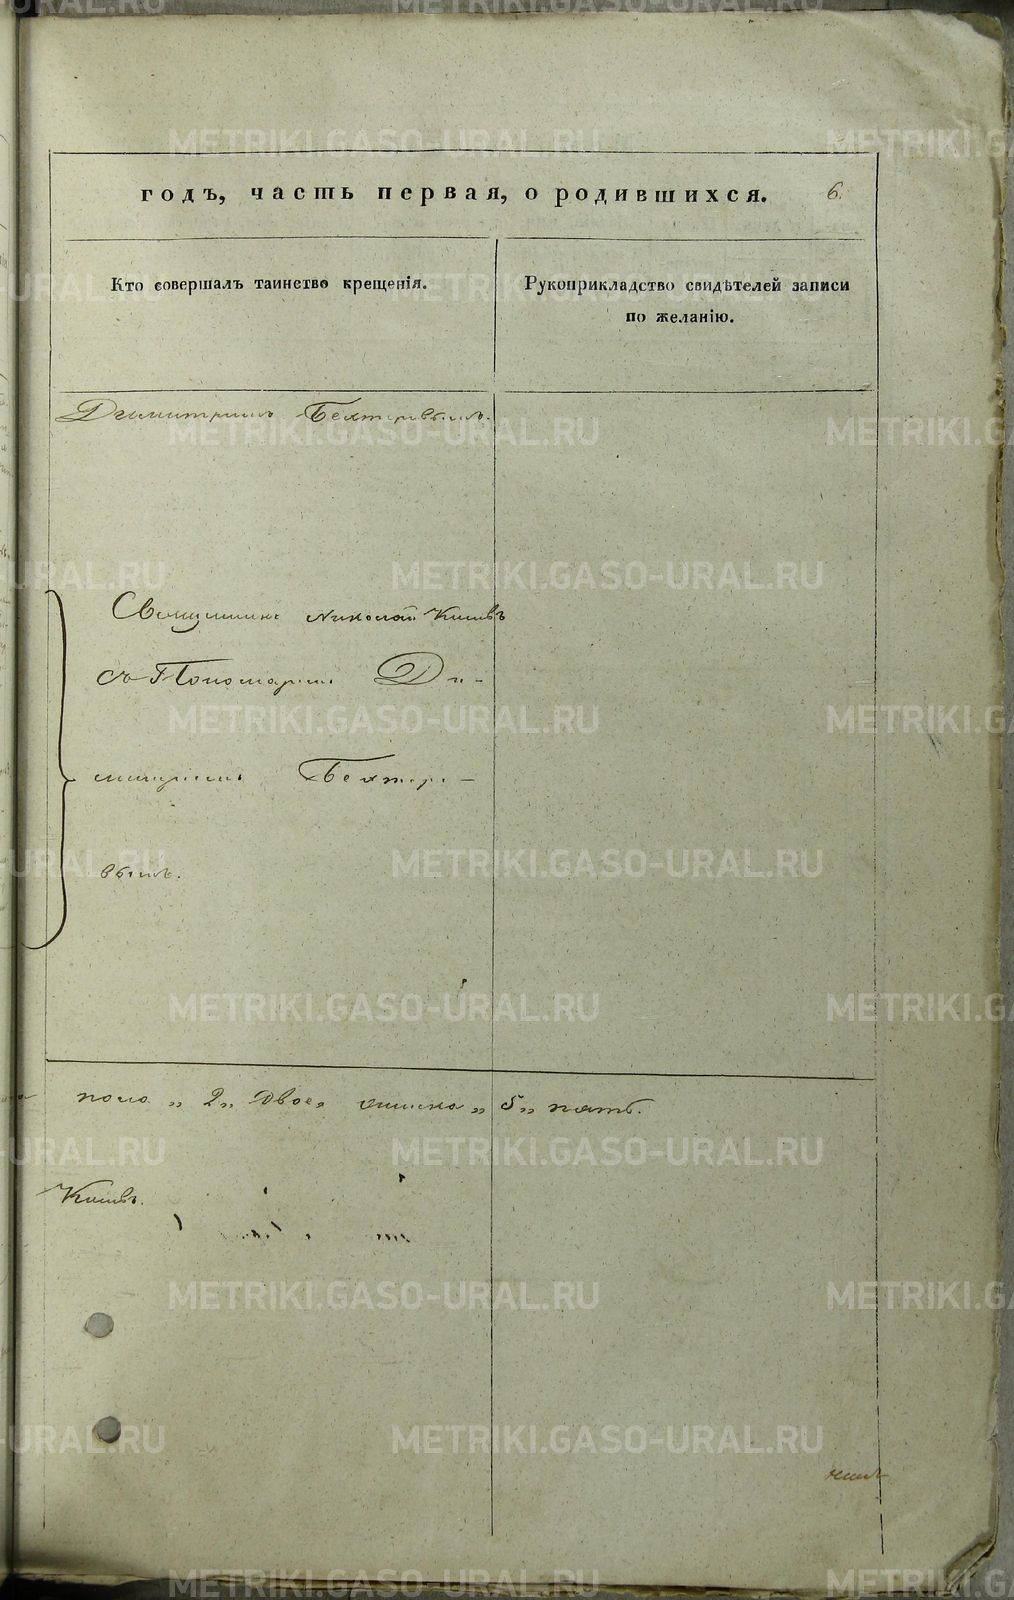 годъ, часть первая, о родившихся. 6.
Кто совершалъ таинство крещенія.
Рукоприкладство свидѣтелей записи
по желанію.
Димитріемъ Бехтеревымъ.
Священникъ Николай
съ Пономаремъ Ди-
митріемъ Бехтере-
вымъ.
пола „ 2 „ двое, „ 5 „ пять.
METRIKI.GASO-URAL.RU